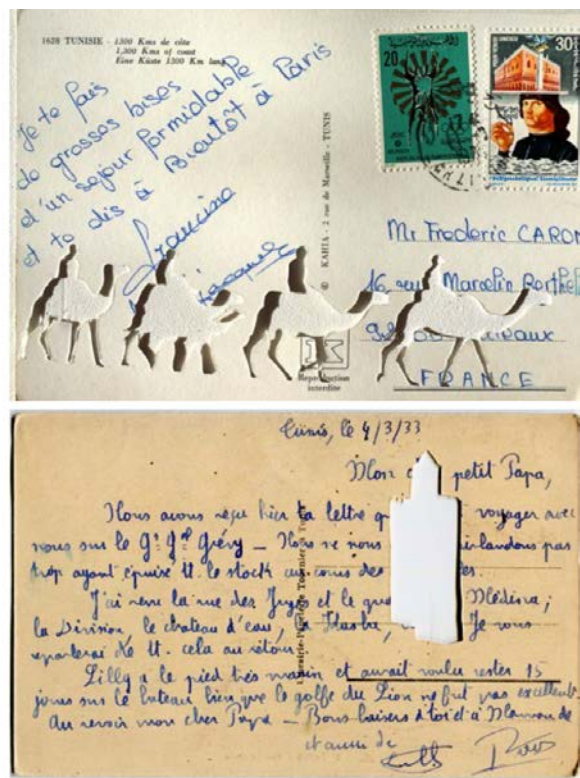 1628 TUNISIE - 1300 Kms de côte
1,300 Kms of coast
Eine Küste 1300 Km lang
Je te fais
de grosses bises
d'un séjour formidable
et te dis à Bientôt à Paris
Francine
© KAHIA - 2 rue de Marseille - TUNIS
20
30
Mr Frederic CARON
16 rue Marcelin Berthelot
FRANCE
Reproduction
interdite
Tunis, le 4/3/33
Mon petit Papa,
Nous avons reçu hier ta lettre voyager avec
nous sur le Gr Gal Grévy - Nous ne nous pas
trop ayant épuisé tt. le stock au cours des
J'ai revu la rue des Juges et le Médina;
la Division, le chateau d'eau, la Je vous
reparlerai de tt. cela au retour.
Lilly a le pied très marin et aurait voulu rester 15
jours sur le bateau bien que le golfe du Lion ne fut pas excellent
Au revoir mon cher Papa - Bons baisers à toi et à Maman de
et aussi de